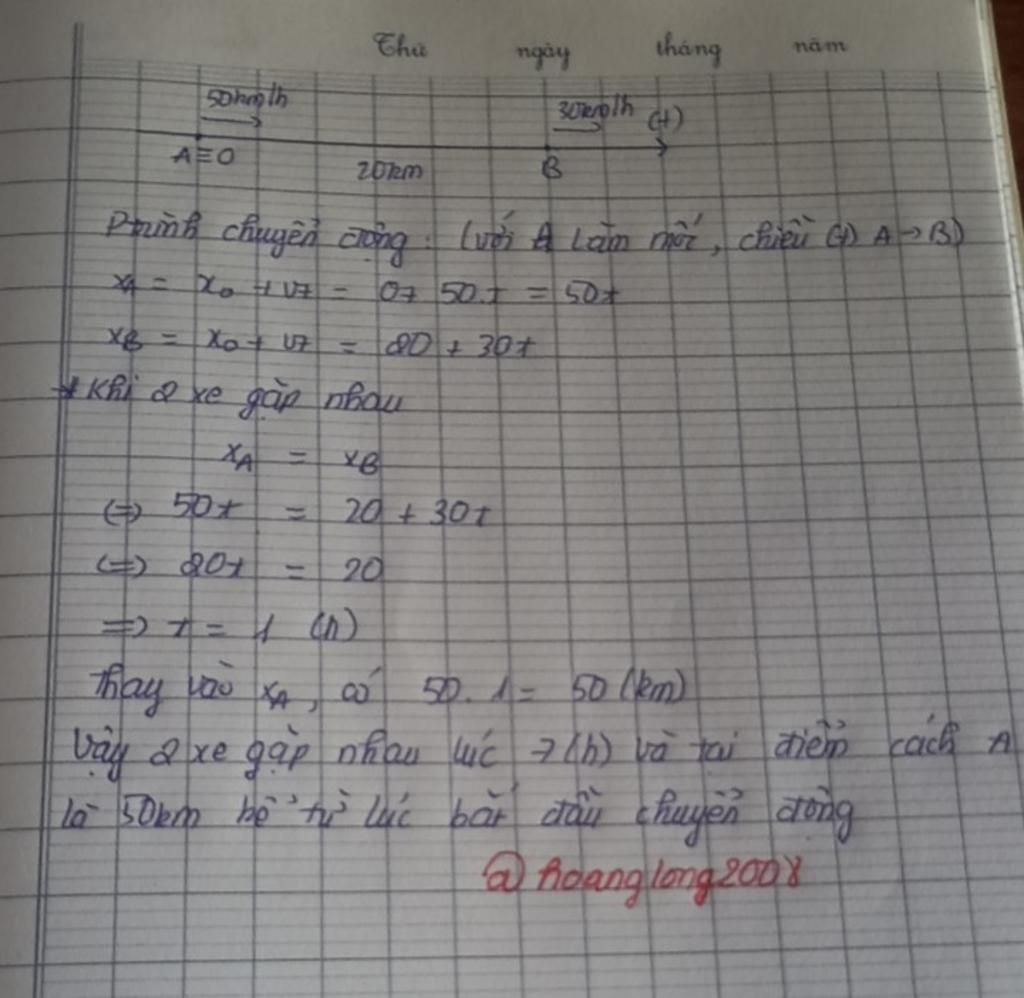 Thứ ngày tháng năm
50km/h 30km/h (+)
A≡O 20km B
Ptrình chuyển động : (với A làm mốc, chiều (+) A → B)
xA = x0 + vt = 0+ 50.t = 50t
xB = x0 + vt = 20 + 30t
* Khi 2 xe gặp nhau
xA = xB
(=) 50t = 20 + 30t
(=) 20t = 20
=> t = 1 (h)
Thay vào xA, có 50. 1 = 50 (km)
Vậy 2 xe gặp nhau lúc 7(h) và tại điểm cách A
là 50km kể từ lúc bắt đầu chuyển động
@hoanglong2008